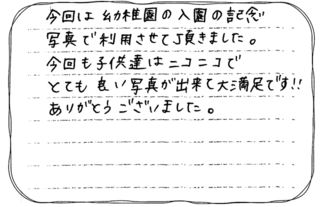 今回は幼稚園の入園の記念
写真で利用させて頂きました。
今回も子供達はニコニコで
とても良い写真が出来て大満足です!!
ありがとうございました。